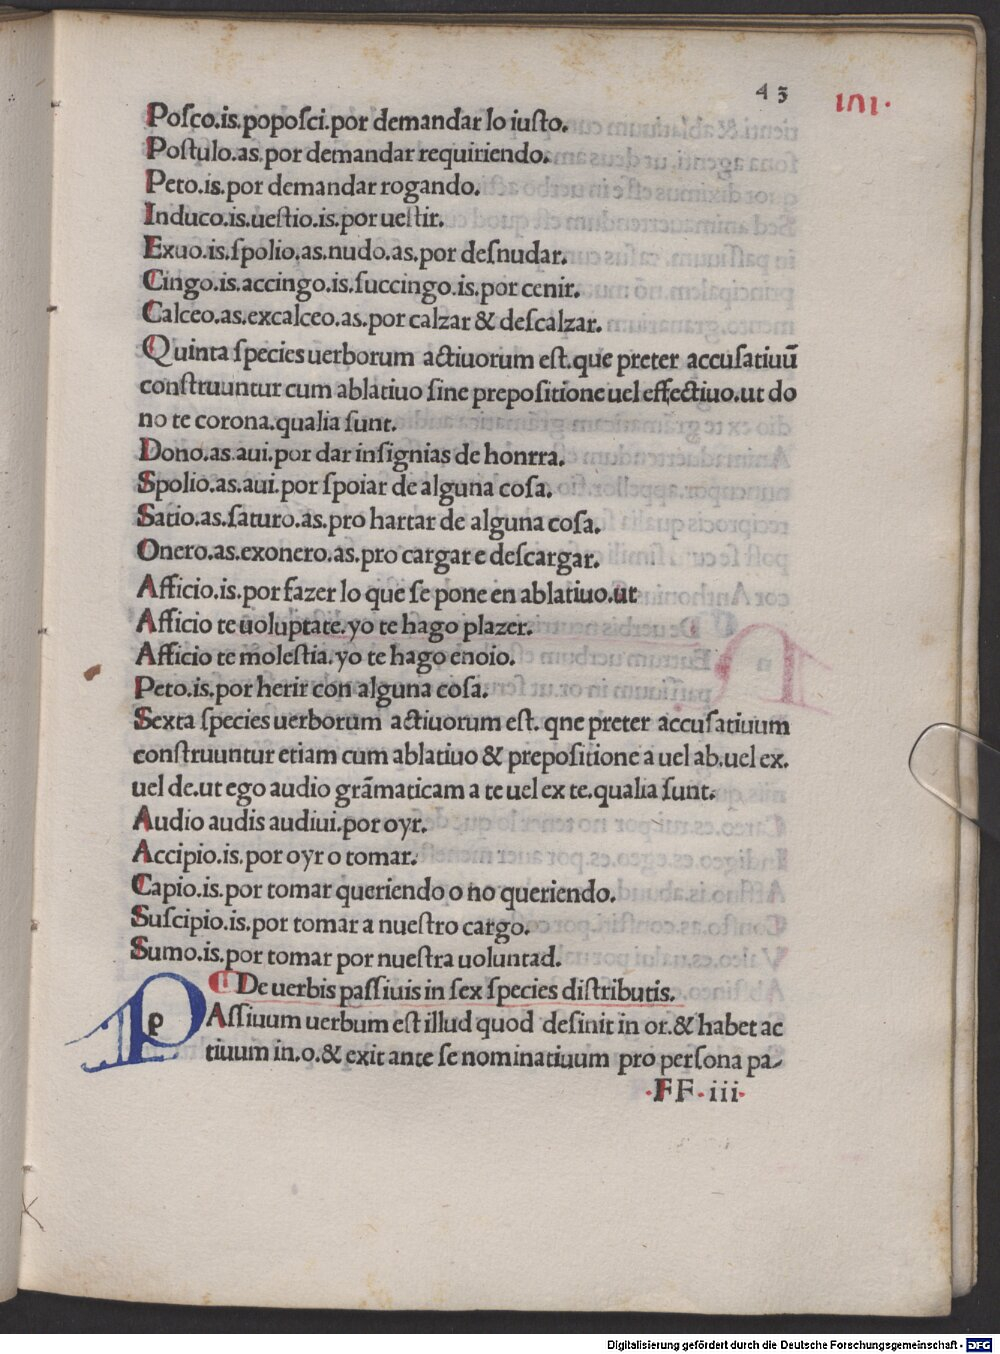 43 ını.
Poſco.is.popoſci.por demandar lo iusto.
Postulo.as.por demandar requiriendo.
Peto.is.por demandar rogando.
Induco.is.uestio.is.por uestir.
Exuo.is.ſpolio.as.nudo.as.por deſnudar.
Cingo.is.accingo.is.ſuccingo.is.por cenir.
Calceo.as.excalceo.as.por calzar & deſcalzar.
Quinta ſpecies uerborum actiuorum est.que preter accuſatiuũ
construuntur cum ablatiuo ſine prepoſitione uel effectiuo.ut do
no te corona.qualia ſunt.
Dono.as.aui.por dar inſignias de honrra.
Spolio.as.aui.por ſpoiar de alguna coſa.
Satio.as.ſaturo.as.pro hartar de alguna coſa.
Onero.as.exonero.as.pro cargar e deſcargar.
Afficio.is.por fazer lo que ſe pone en ablatiuo.ut
Afficio te uoluptate.yo te hago plazer.
Afficio te molestia.yo te hago enoio.
Peto.is.por herir con alguna coſa.
Sexta ſpecies uerborum actiuorum est. qne preter accuſatiuum
construuntur etiam cum ablatiuo & prepoſitione a uel ab.uel ex.
uel de.ut ego audio grãmaticam a te uel ex te.qualia ſunt.
Audio audis audiui.por oyr.
Accipio.is.por oyr o tomar.
Capio.is.por tomar queriendo o no queriendo.
Suſcipio.is.por tomar a nuestro cargo.
Sumo.is.por tomar por nuestra uoluntad.
De uerbis paſſiuis in ſex ſpecies distributis.
PAſſiuum uerbum est illud quod deſinit in or.& habet ac
tiuum in.o.& exit ante ſe nominatiuum pro perſona pa-
.FF.iii.
Digitalisierung gefördert durch die Deutsche Forschungsgemeinschaft - DFG